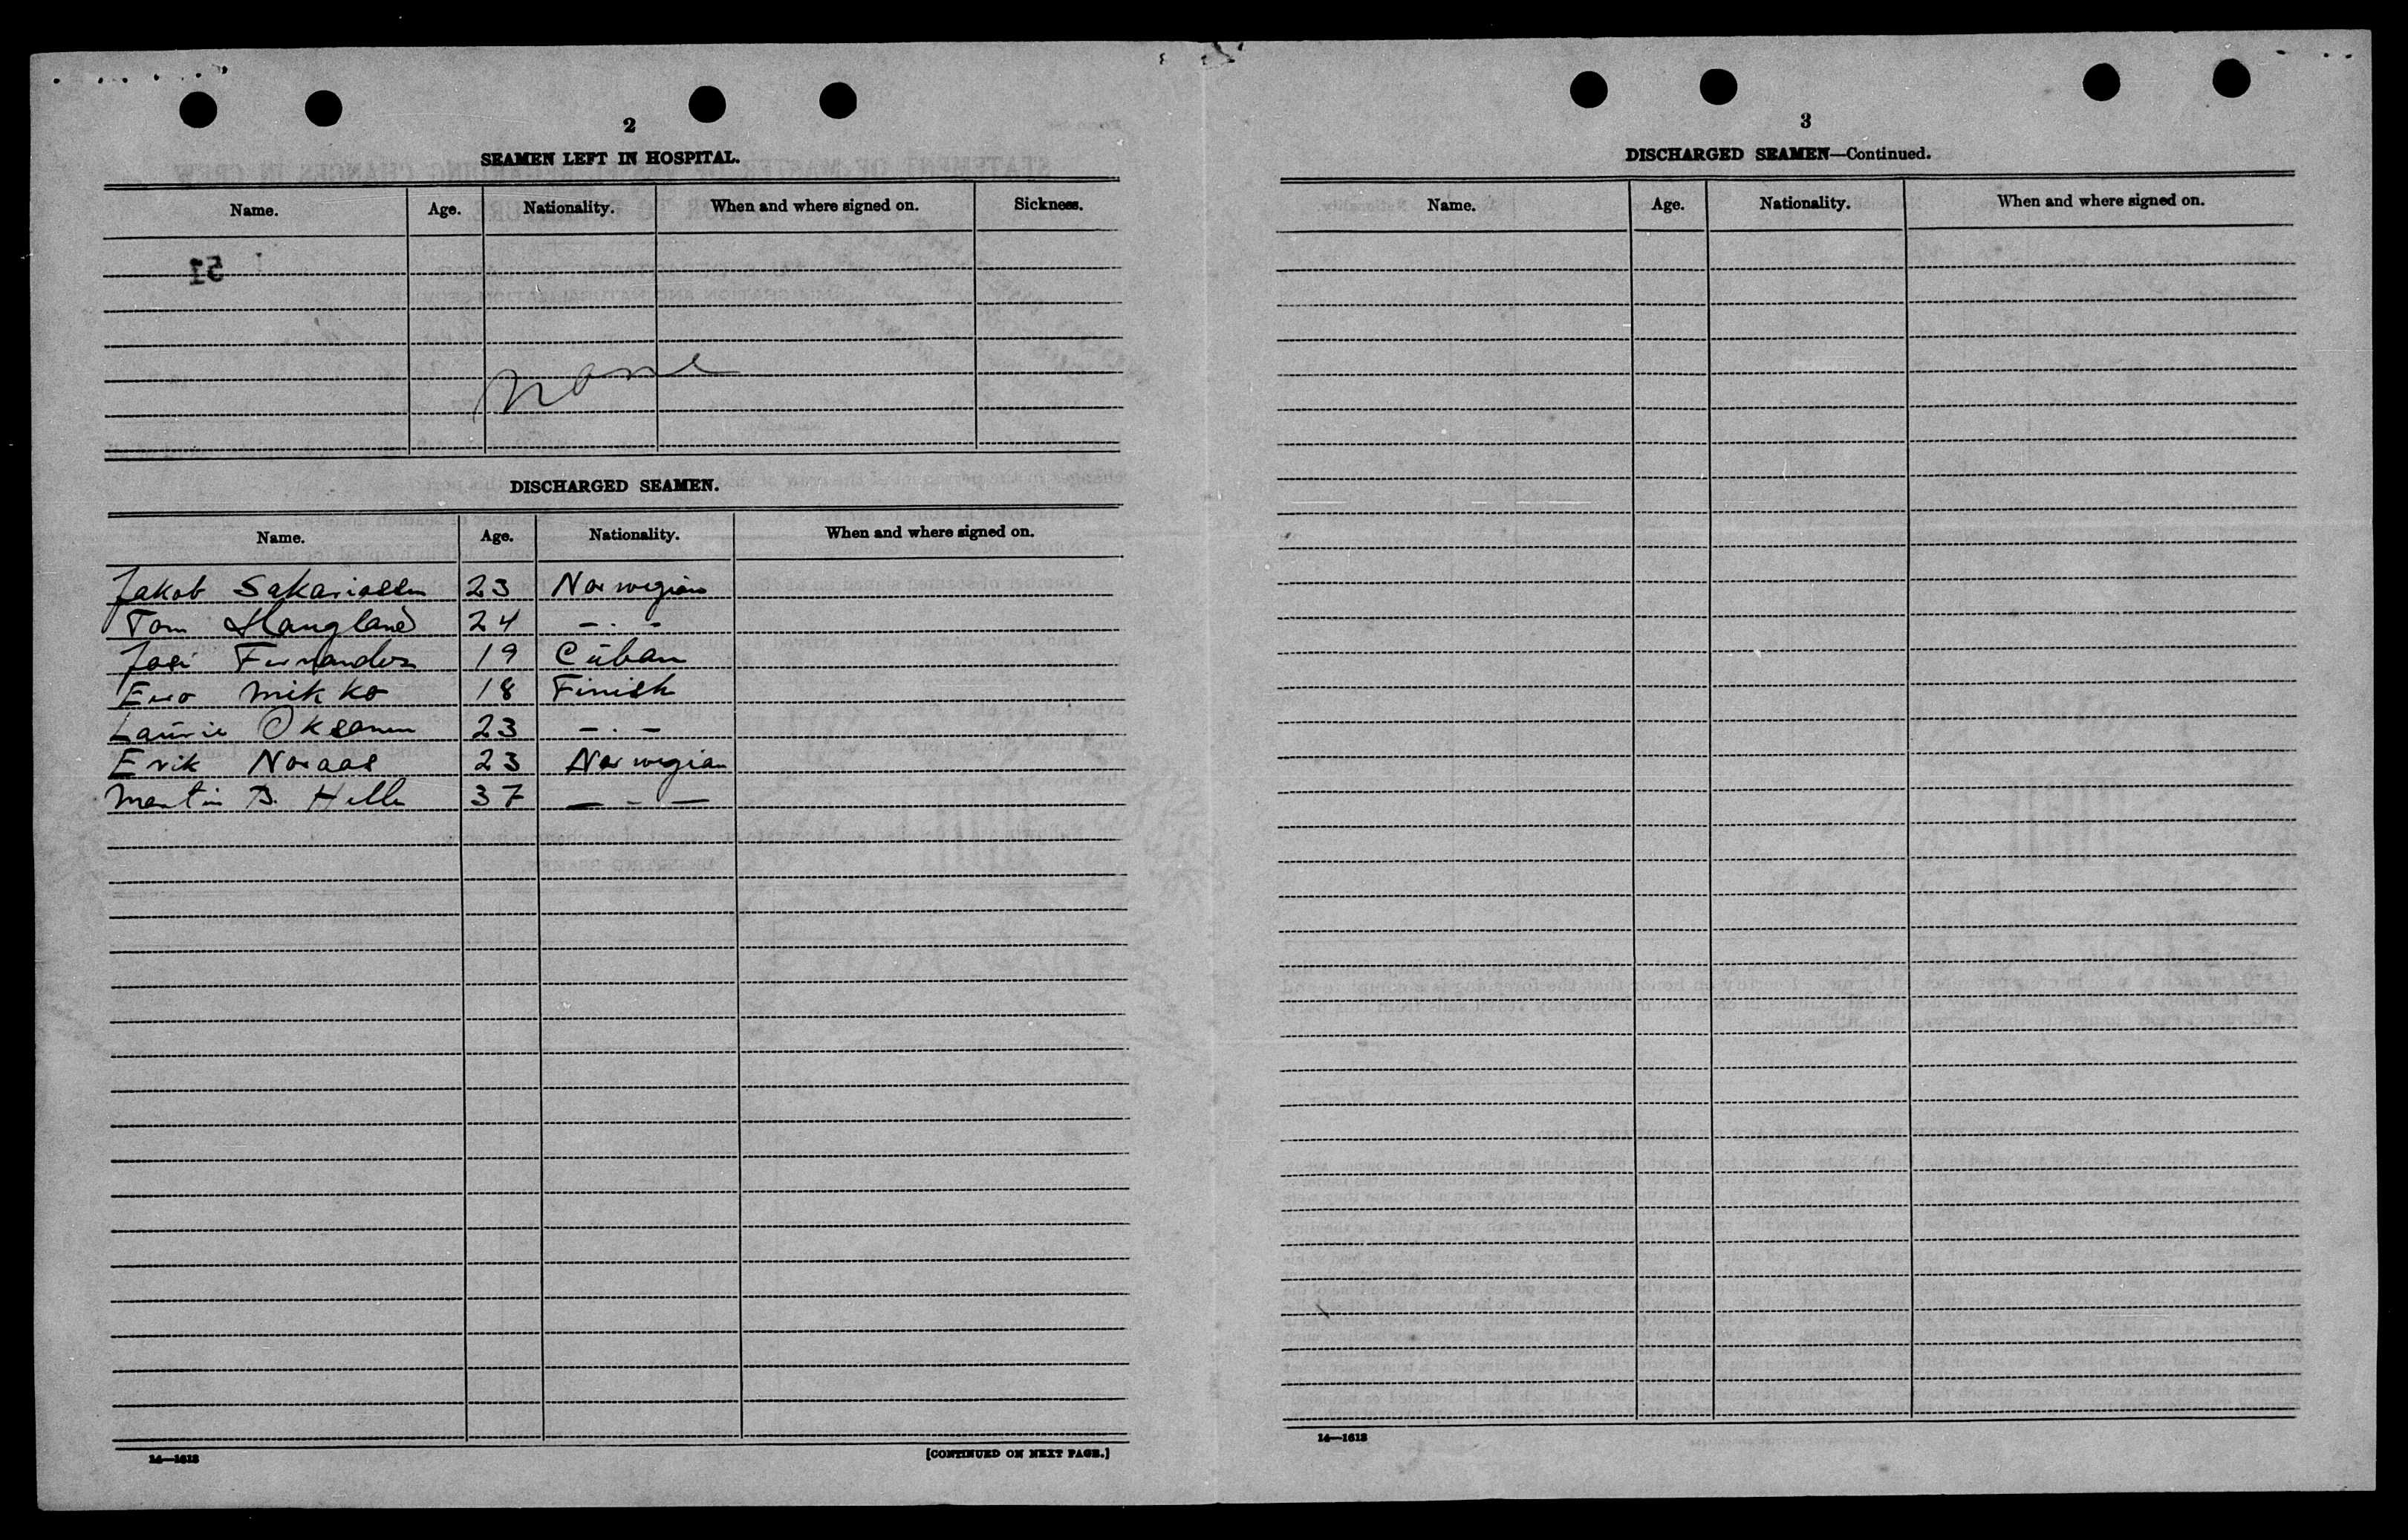 2
SEAMEN LEFT IN HOSPITAL.
Name. Age. Nationality. When and where signed on. Sickness.
51
None
DISCHARGED SEAMEN.
Name. Age. Nationality. When and where signed on.
Jakob Sakariassen 23 Norwegian
Tom Haugland 24 - . -
José Fernandez 19 Cuban
Eero Mikko 18 Finish
Laurie Oksanen 23 - . -
Erik Noraas 23 Norwegian
Martin B. Helle 37 - - -
14—1613
[CONTINUED ON NEXT PAGE.]
3
DISCHARGED SEAMEN—Continued.
Name. Age. Nationality. When and where signed on.
14—1613